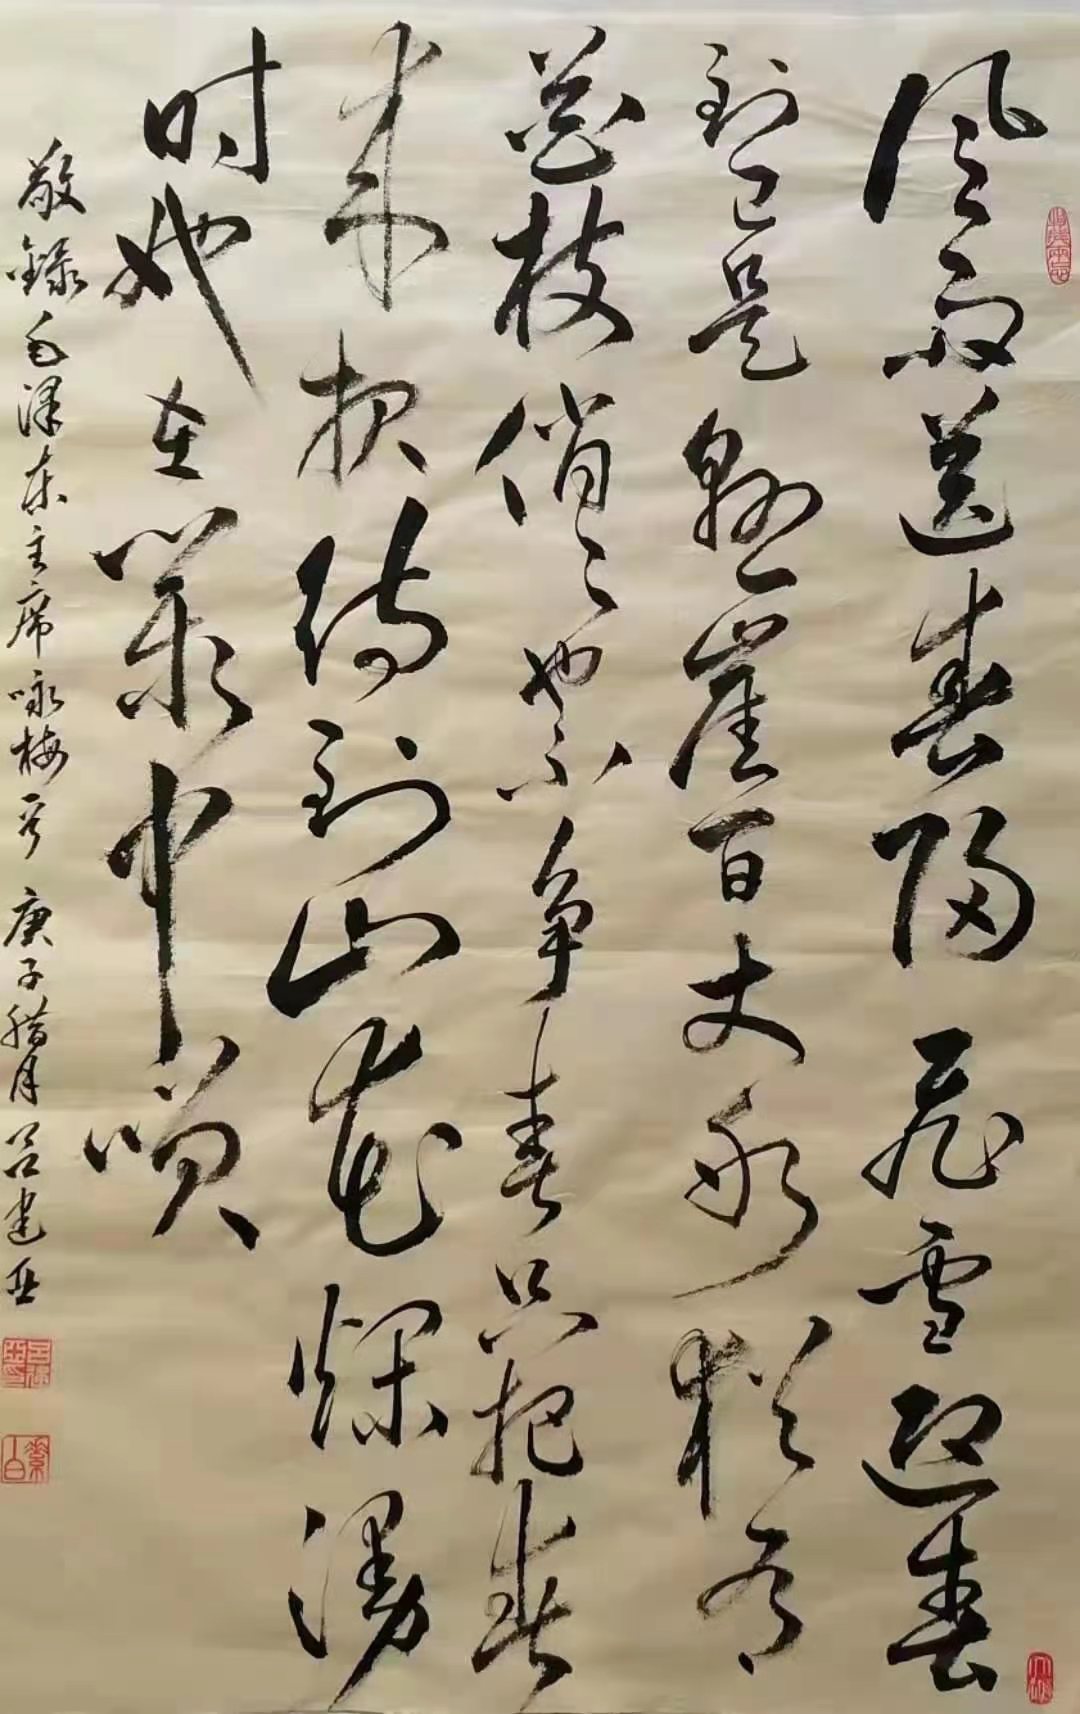 风雨送春归飞雪迎春
到已是悬崖百丈冰犹有
花枝俏〻也不争春只把春
来报待到山花烂漫
时她在丛中笑
敬録毛泽东主席咏梅 庚子腊月吕建亚